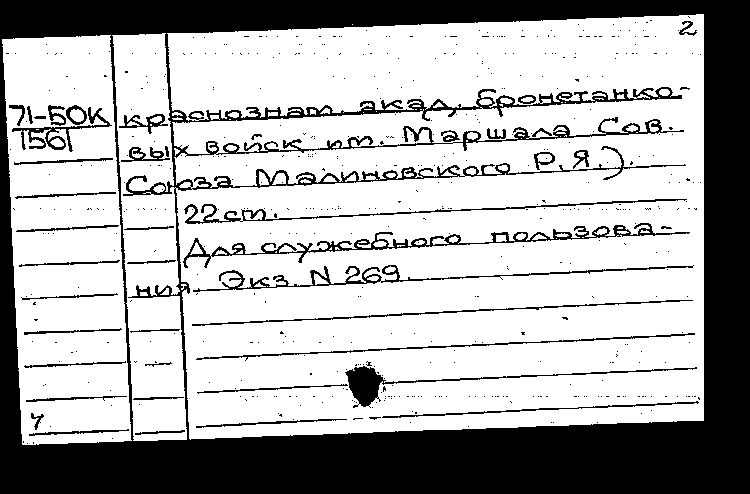 2
71-50К краснознам. акад. бронетанко-
1561 вых войск им. Маршала Сов.
Союза Малиновского Р.Я.).
22 cm.
Для служебного пользова-
ния. Экз. N 269.
Ч